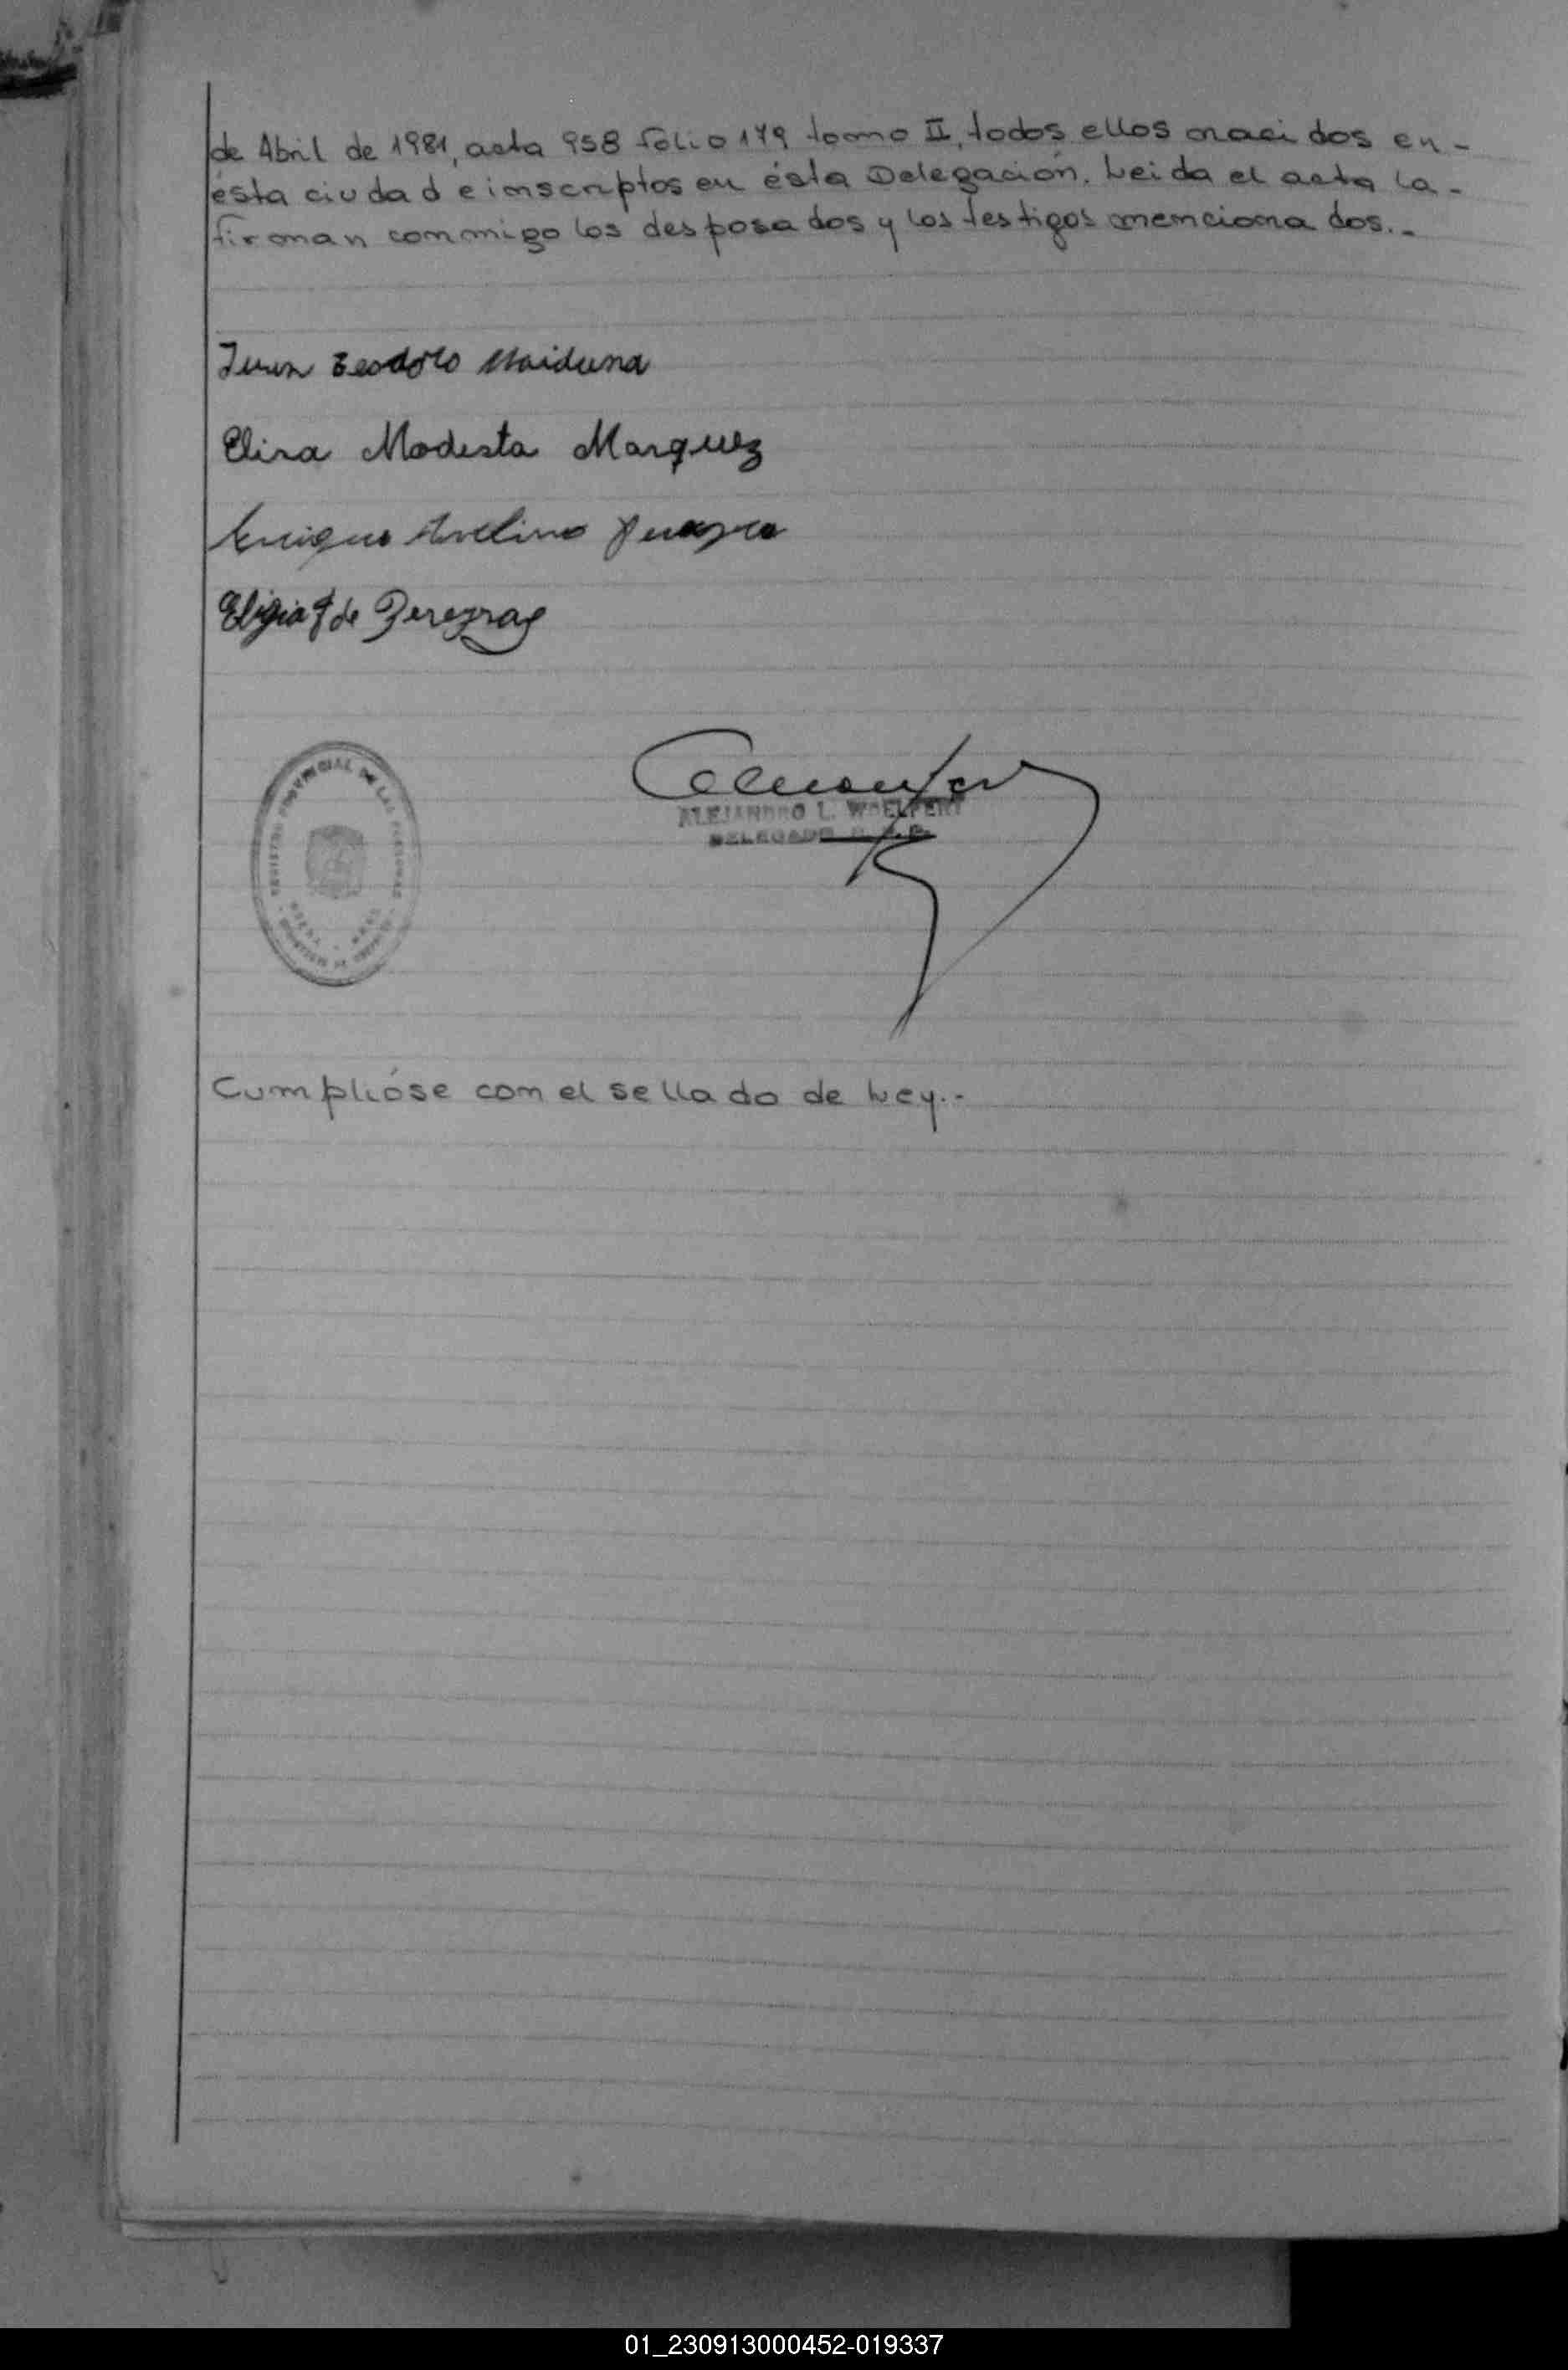 de Abril de 1981, acta 958 folio 179 tomo II, todos ellos nacidos en-
ésta ciudad e inscriptos en ésta Delegación. Leida el acta la-
firman conmigo los desposados y los testigos mencionados..-
Juan Teodoro Maidana
Elisa Modesta Marquez
Enrique Avelino Pereyra
Eligia de Pereyra
REGISTRO PROVINCIAL DE LAS PERSONAS
ALEJANDRO L. WOELFERT
DELEGADO R. P.
Cumplióse con el sellado de Ley..-
01_230913000452-019337